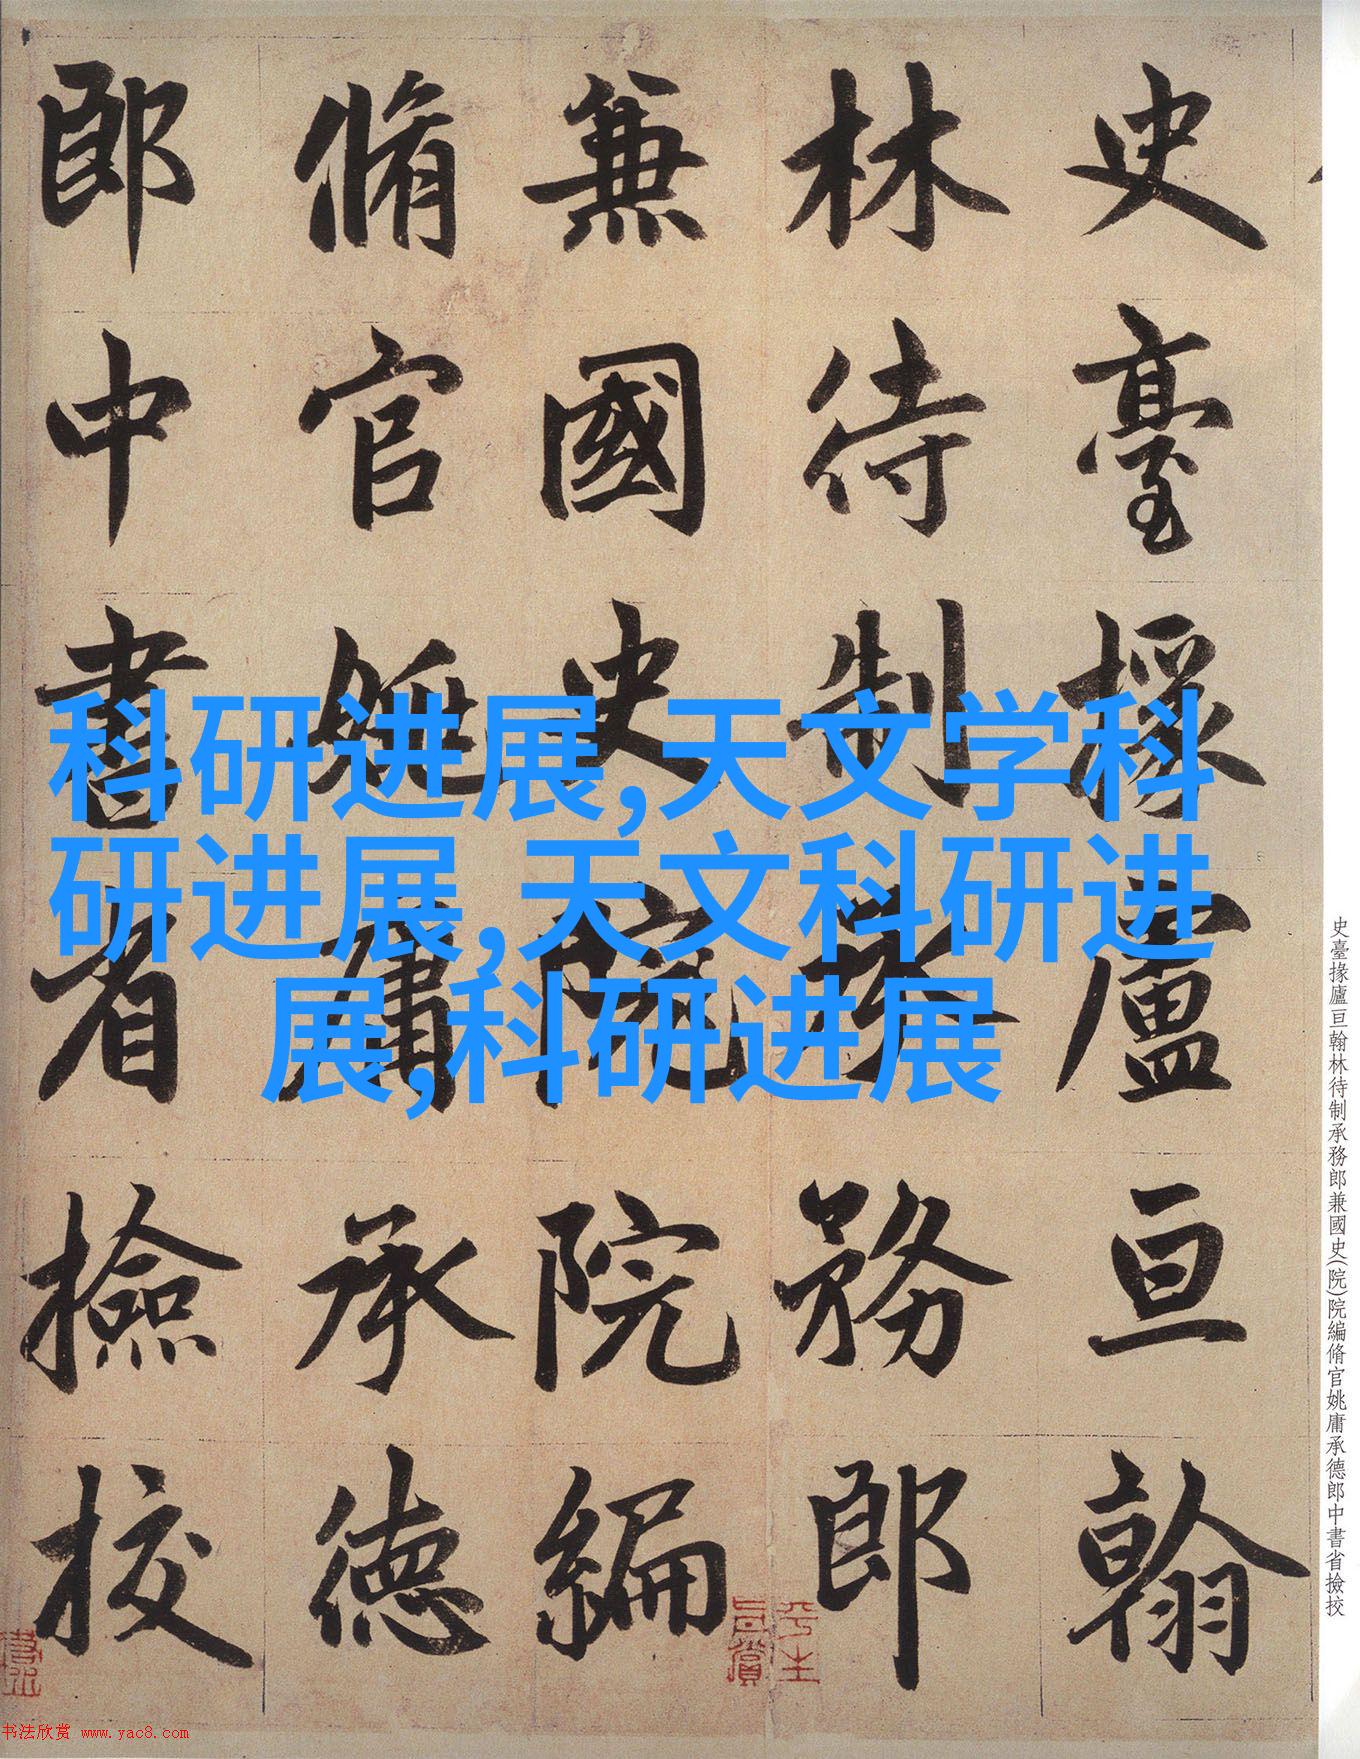 史臺掾廬亘翰林待制承務郎兼國史(院)院編脩官姚庸承德郎中書省撿挍
史臺掾廬亘翰
林待制承務郎
兼國史院院編
脩官姚庸承德
郎中書省撿挍
科研进展,天文学科
研进展,天文科研进
展,科研进展
书法欣赏 www.yac8.com